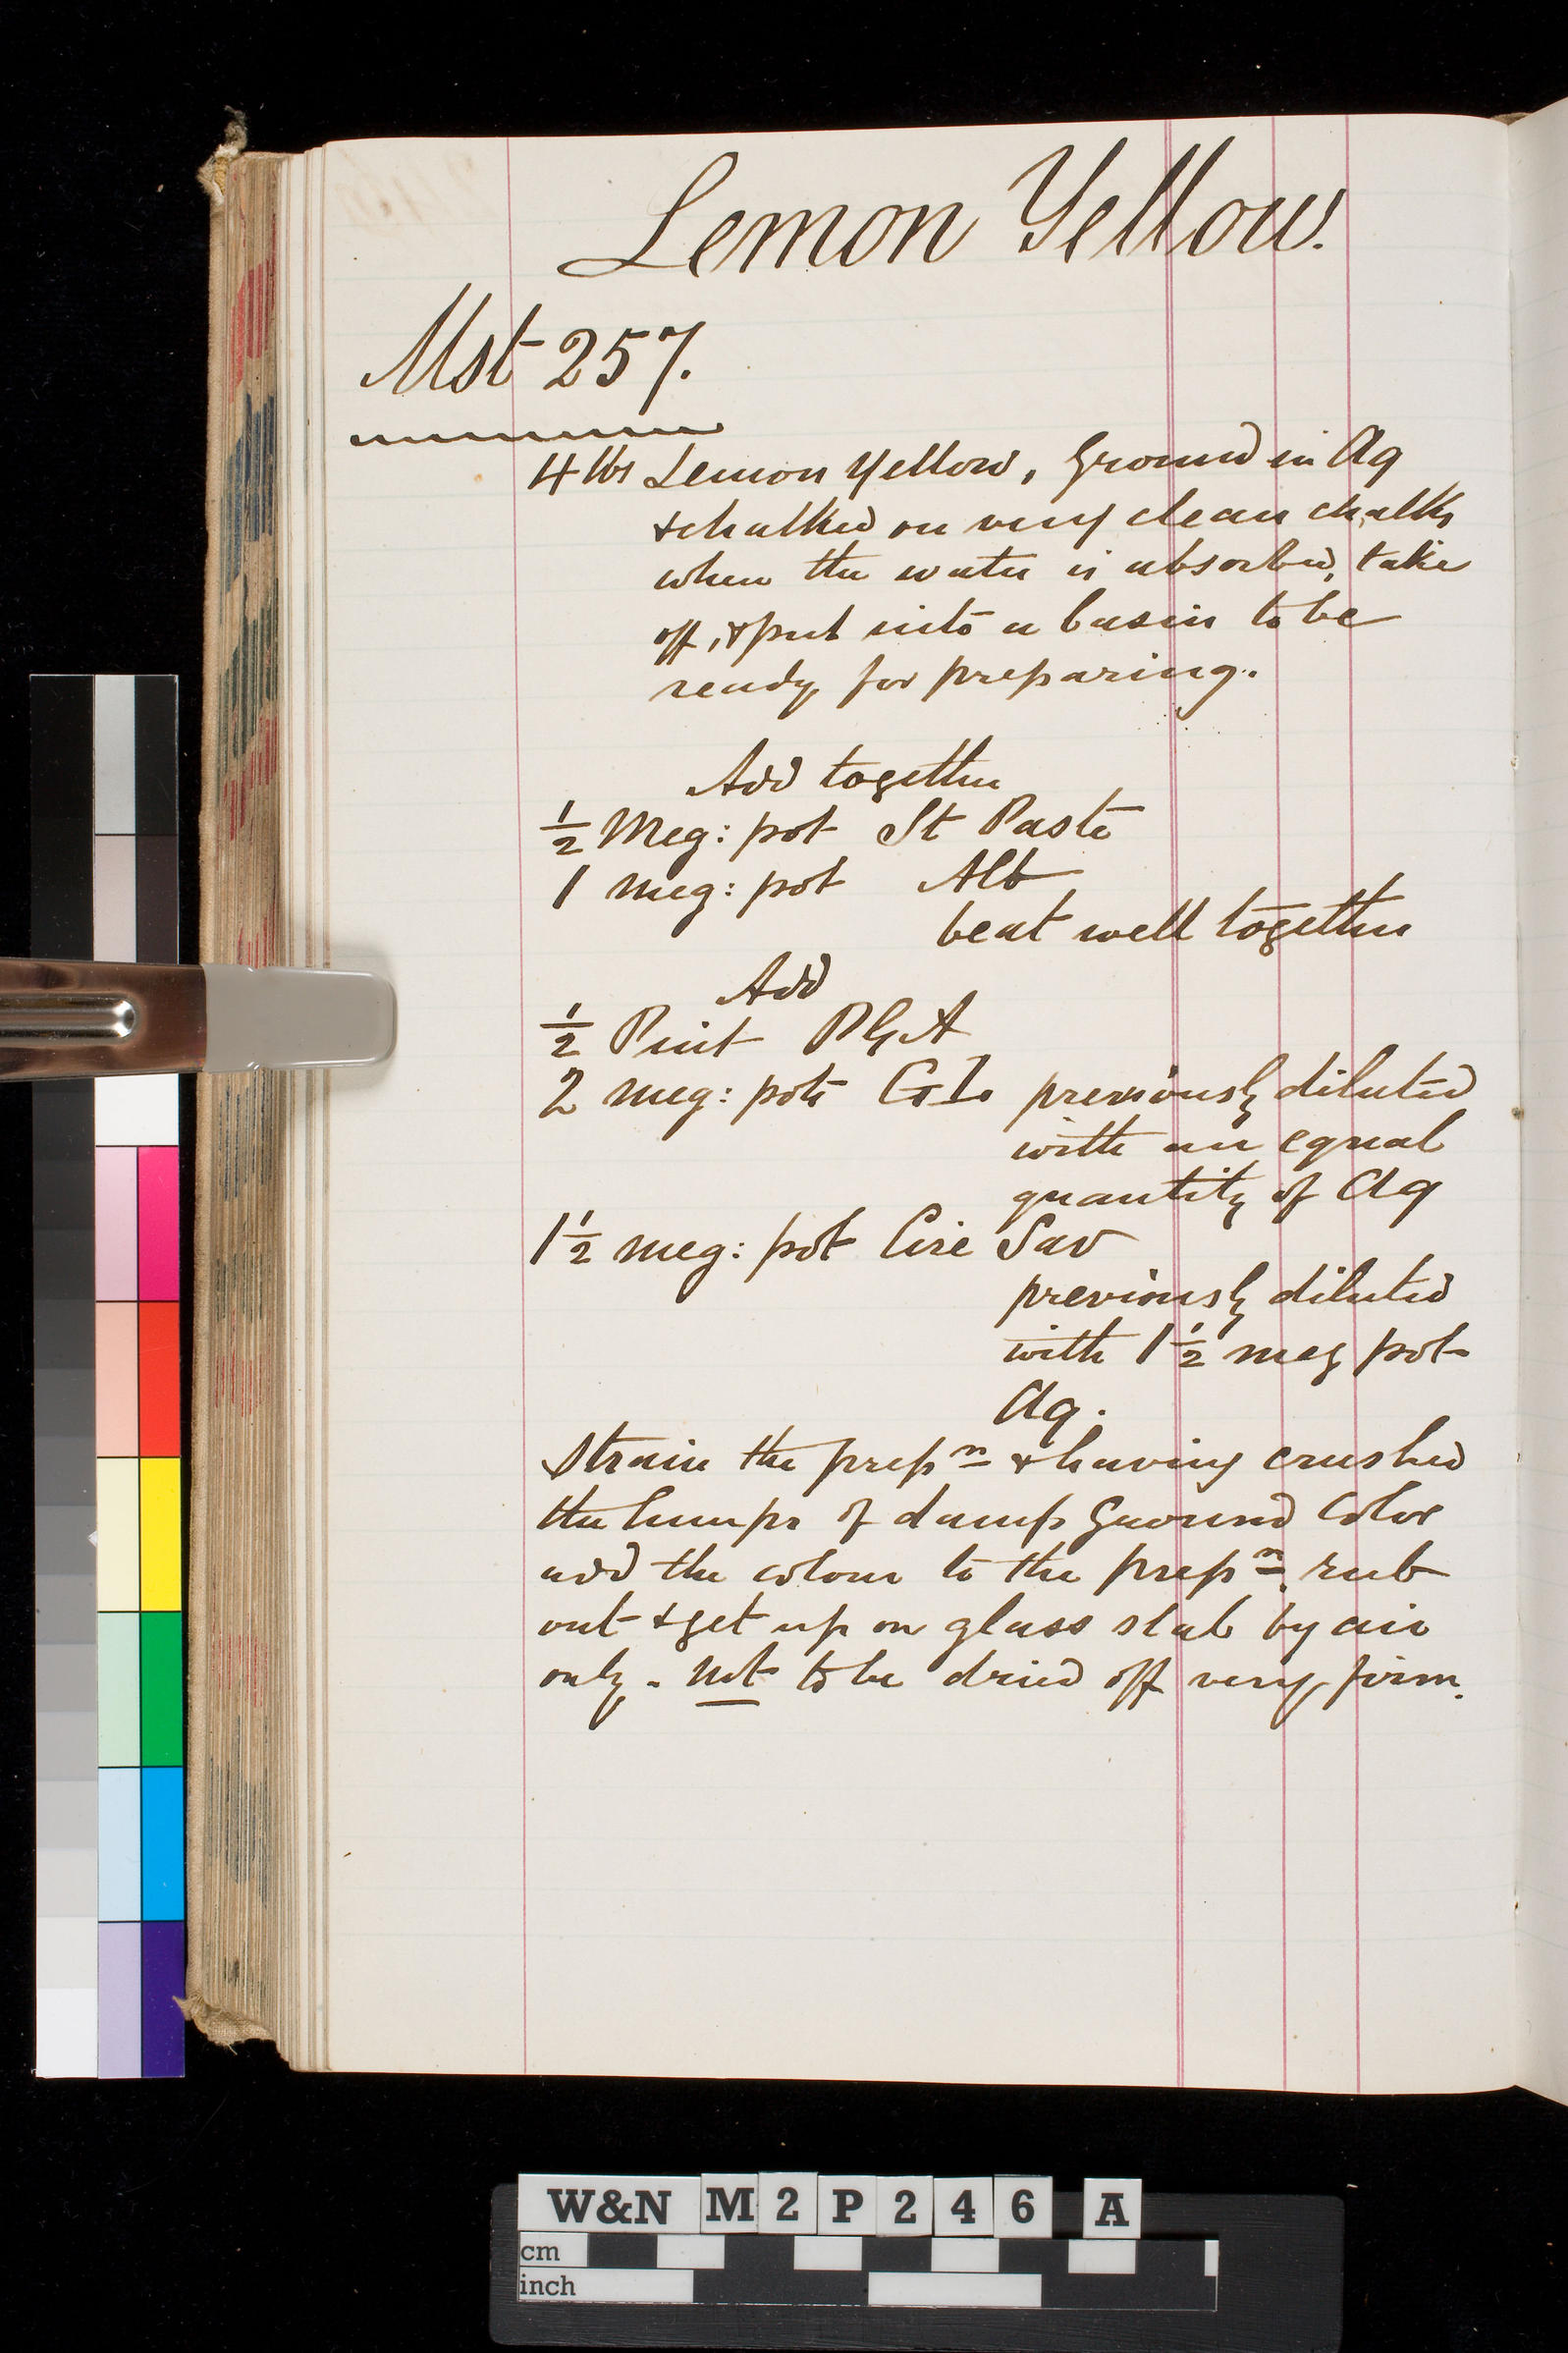 Lemon Yellow.
Mst 257.
4 lbs Lemon Yellow, Ground in Aq
& chalked on very clean chalks
when the water is absorbed, take
off, & put into a basin to be
ready for preparing.
Add together
½ Meg: pot St Paste
1 meg: pot Alb
beat well together
Add
½ Pint PGA
2 meg: pots G1. previously diluted
with an equal
quantity of Aq
1½ meg: pot Cire Sav
previously diluted
with 1½ meg pot
Aq.
Strain the prepn & having crushed
the lumps of damp Ground Color
add the colour to the prepn. rub
out & get up on glass slab by air
only. not to be dried off very firm.
W&N M2P246 A
cm
inch